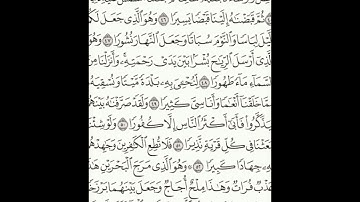 ثُمَّ قَبَضْنَٰهُ إِلَيْنَا قَبْضًا يَسِيرًا ٤٦ وَهُوَ ٱلَّذِى جَعَلَ لَكُ
لَّيْلَ لِبَاسًا وَٱلنَّوْمَ سُبَاتًا وَجَعَلَ ٱلنَّهَارَ نُشُورًا ٤٧ وَهُوَ
ٱلَّذِىٓ أَرْسَلَ ٱلرِّيَٰحَ بُشْرًۢا بَيْنَ يَدَىْ رَحْمَتِهِۦ ۚ وَأَنزَلْنَا مِنَ
ٱلسَّمَآءِ مَآءً طَهُورًا ٤٨ لِّنُحْـِۧىَ بِهِۦ بَلْدَةً مَّيْتًا وَنُسْقِيَهُۥ
مِمَّا خَلَقْنَآ أَنْعَٰمًا وَأَنَاسِىَّ كَثِيرًا ٤٩ وَلَقَدْ صَرَّفْنَٰهُ بَيْنَهُمْ
لِيَذَّكَّرُوا۟ فَأَبَىٰٓ أَكْثَرُ ٱلنَّاسِ إِلَّا كُفُورًا ٥٠ وَلَوْ شِئْنَا
لَبَعَثْنَا فِى كُلِّ قَرْيَةٍ نَّذِيرًا ٥١ فَلَا تُطِعِ ٱلْكَٰفِرِينَ وَجَٰهِدْهُم
بِهِۦ جِهَادًا كَبِيرًا ٥٢ وَهُوَ ٱلَّذِى مَرَجَ ٱلْبَحْرَيْنِ هَٰذَا
عَذْبٌ فُرَاتٌ وَهَٰذَا مِلْحٌ أُجَاجٌ وَجَعَلَ بَيْنَهُمَا بَرْزَخًا